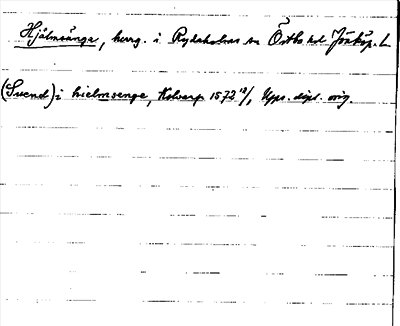 Hjälmsänga, herrg. i Rydaholms sn Östbo hd Jönköp. L.
(Svend) i hielmsenge, Kolvarp 1572 12/1, Upps. dipl. orig.